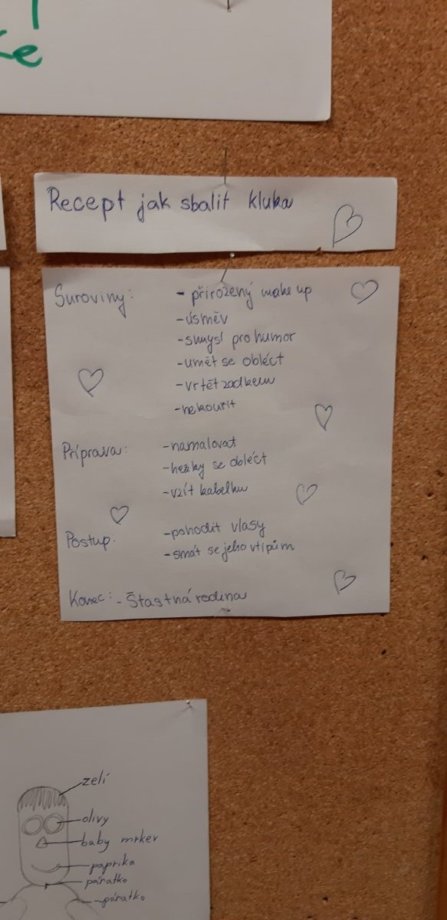 Recept jak sbalit kluka
Suroviny:
- přirozený make up
- úsměv
- smysl pro humor
- umět se obléct
- vrtět zadkem
- nekouřit
Příprava:
- namalovat
- hezky se obléct
- vzít kabelku
Postup:
- pohodit vlasy
- smát se jeho vtipům
Konec: - Šťastná rodina
zelí
olivy
baby mrkev
paprika
páratko
páratko